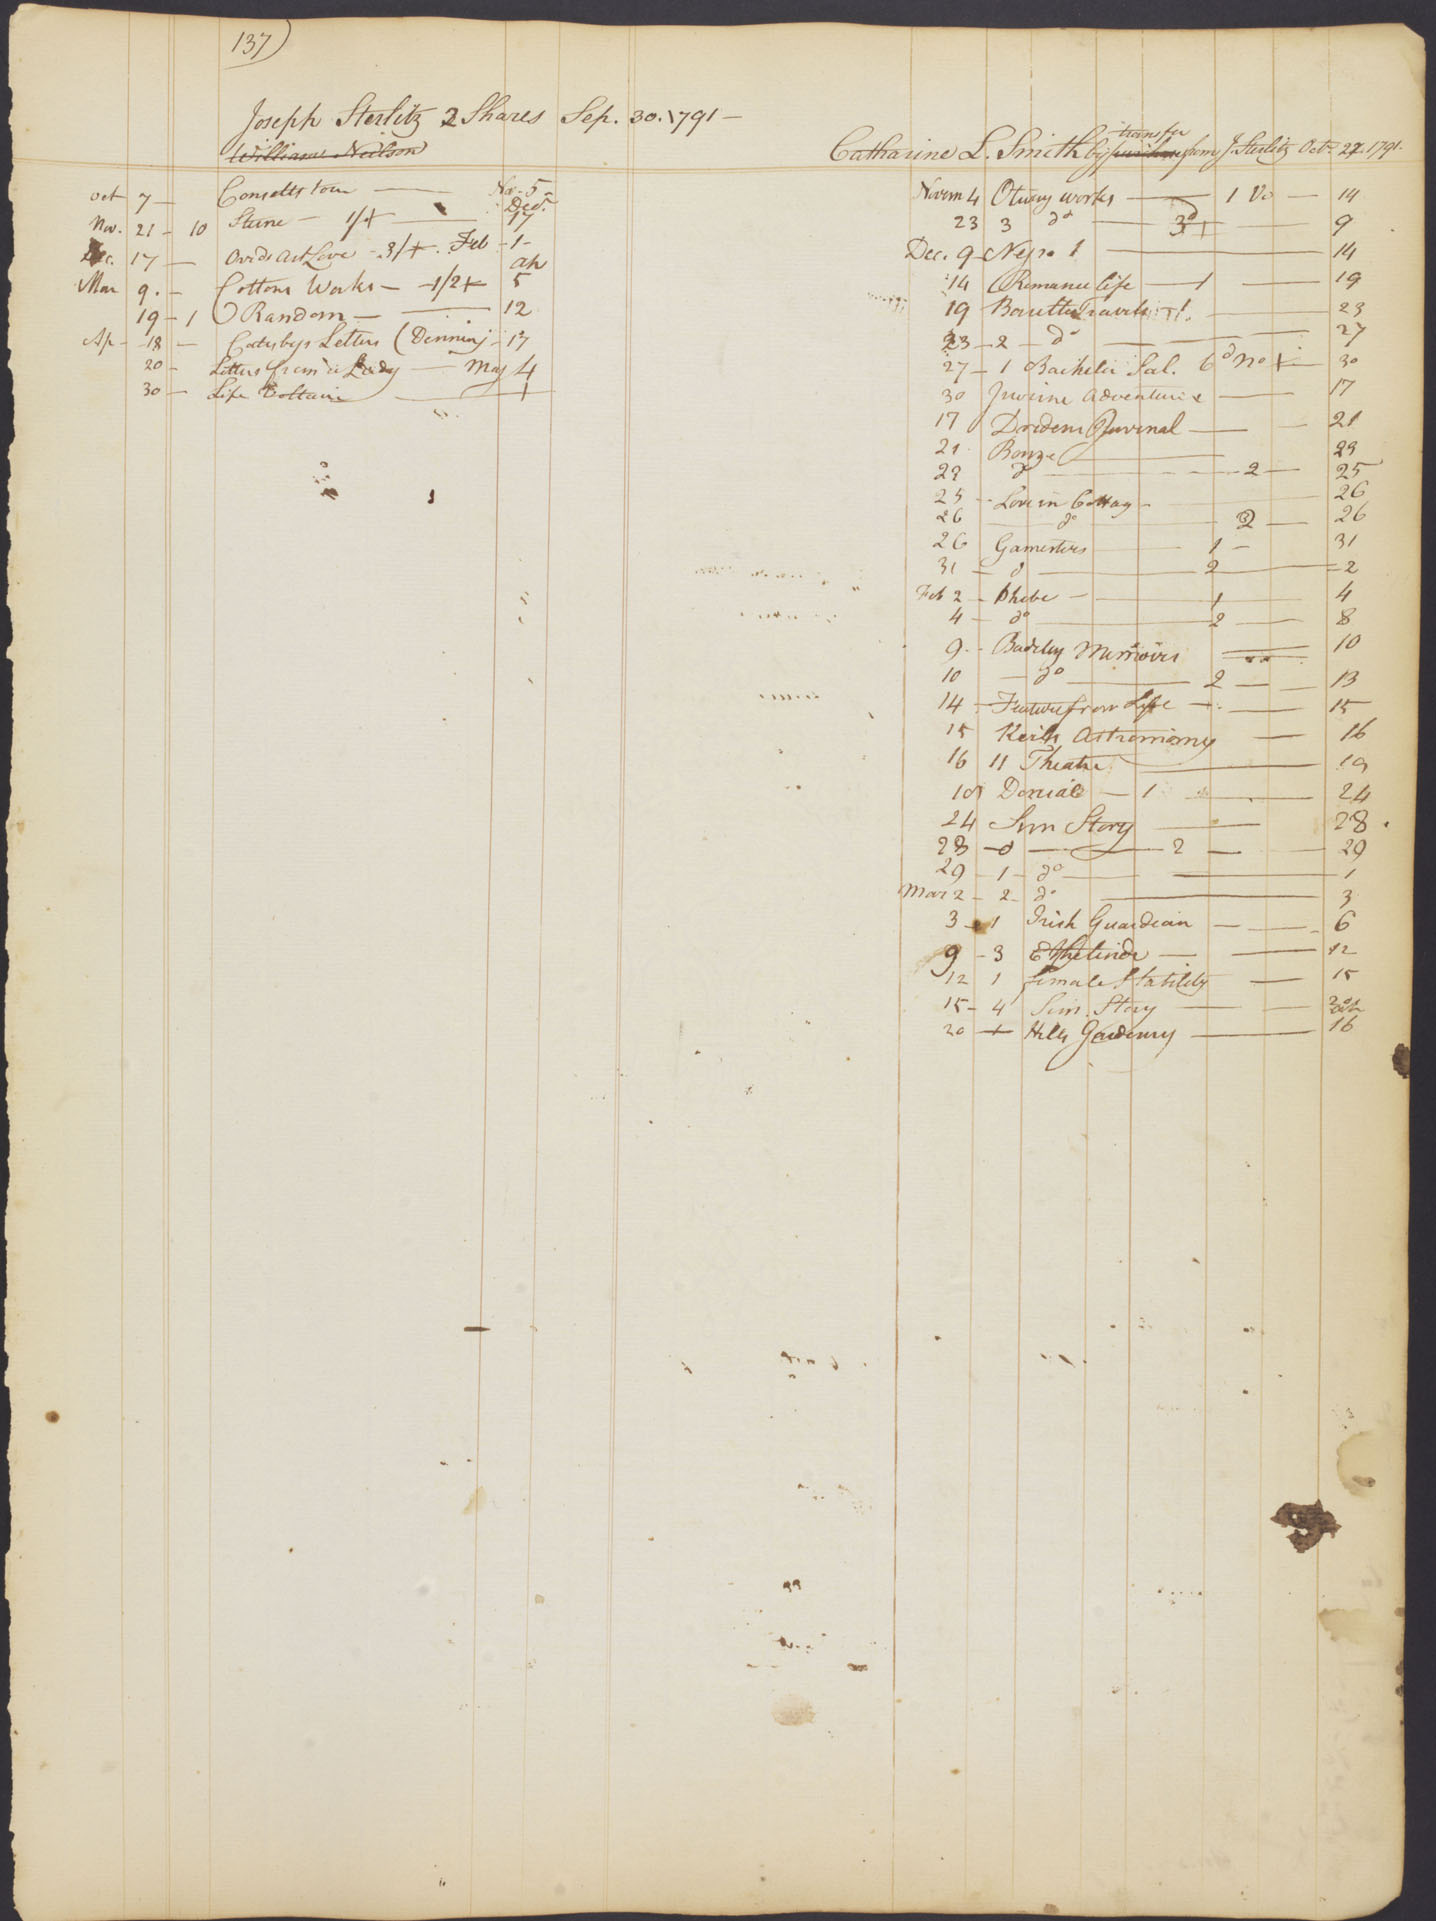 137)
Joseph Sterlitz 2 Shares Sep. 30. 1791 —
William Neilson
Oct 7 — Consetts tour — Nov. 5
Nov. 21 — 10 Sterne — 1/+ — Dec. 17
Dec. 17 — Ovids Art Love — 3/+ . Feb — 1 —
Mar 9. — Cottons Works — 1/2+ ap 5
19 — 1 Random — 12
Ap — 18 — Catesbys Letters (Denning — 17
20 — Letters from a Lady — May 4
30 — Life Voltaire — +
Catharine L. Smith by purchase transfer from J. Sterlitz Octr 27. 1791.
Novem 4 Otway works — 1 Vo — 14
23 3 do — 3d + — 9
Dec. 9 — Nepo 1 — 14
14 Romance life — 1 — 19
19 Baretti Travels 1. — 23
23 — 2 — do — 27
27 — 1 Bachelor Sal. 6d No + — 30
30 Juvenile adventures — 17
17 Drydens Juvenal — 21
21 Bonze — 23
23 do — 2 — 25
25 — Love in Cottag — 26
26 — do — 2 — 26
26 Gamesters — 1 — 31
31 — d — 2 — 2
Feb 2 — Phebe — 1 — 4
4 — do — 2 — 8
9 — Badeley Memoirs — 10
10 — do — 2 — 13
14 — Feature from Life — 15
15 Keils Astronomy — 16
16 11 Theatre — 19
19 Denial — 1 — 24
24 Sim Story — 28
28 — d — 2 — 29
29 — 1 — do — 1
Mar 2 — 2 — do — 3
3 — 1 Irish Guardian — 6
9 — 3 Ethelinde — 12
12 1 female Stability — 15
15 — 4 Sim. Story — 20
20 — + Hills Gardening — 16